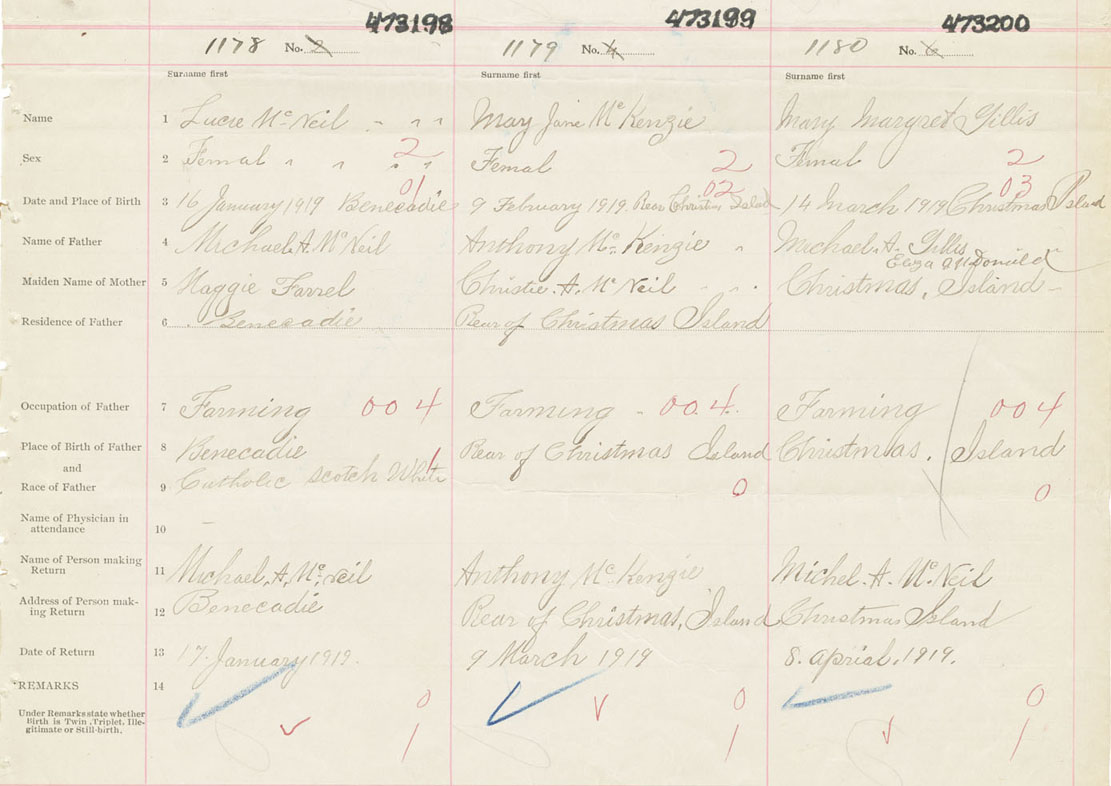 473198 473199 473200
1178 No. 2 1179 No. 4 1180 No. 6
Surname first Surname first Surname first
Name 1 Lucie McNeil " " " May Jane McKenzie Mary Margret Gillis
Sex 2 Femal " " " " 2 Femal 2 Femal 2
01 02 03
Date and Place of Birth 3 16 January 1919 Benecadie 9 February 1919. Rear Christmas Island 14 March 1919 Christmas Island
Name of Father 4 Michael A. McNeil Anthony McKenzie " Michael. A. Gillis
Eliza McDonald
Maiden Name of Mother 5 Maggie Farrel Christie. A. McNeil Christmas, Island -
Residence of Father 6 Benecadie Rear of Christmas Island
Occupation of Father 7 Farming 004 Farming - 004 Farming 004
Place of Birth of Father 8 Benecadie Rear of Christmas Island Christmas. Island
and
Race of Father 9 Catholic Scotch White 1 0 0
Name of Physician in
attendance 10 -
Name of Person making
Return 11 Michael. A. McNeil Anthony McKenzie Michel. A. McNeil
Address of Person mak-
ing Return 12 Benecadie Rear of Christmas, Island Christmas Island
Date of Return 13 17. January 1919. 9 March 1919 8. Aprial. 1919.
*REMARKS 14 0 0 0
Under Remarks state whether
Birth is Twin, Triplet, Ille-
gitimate or Still-birth. 1 1 1